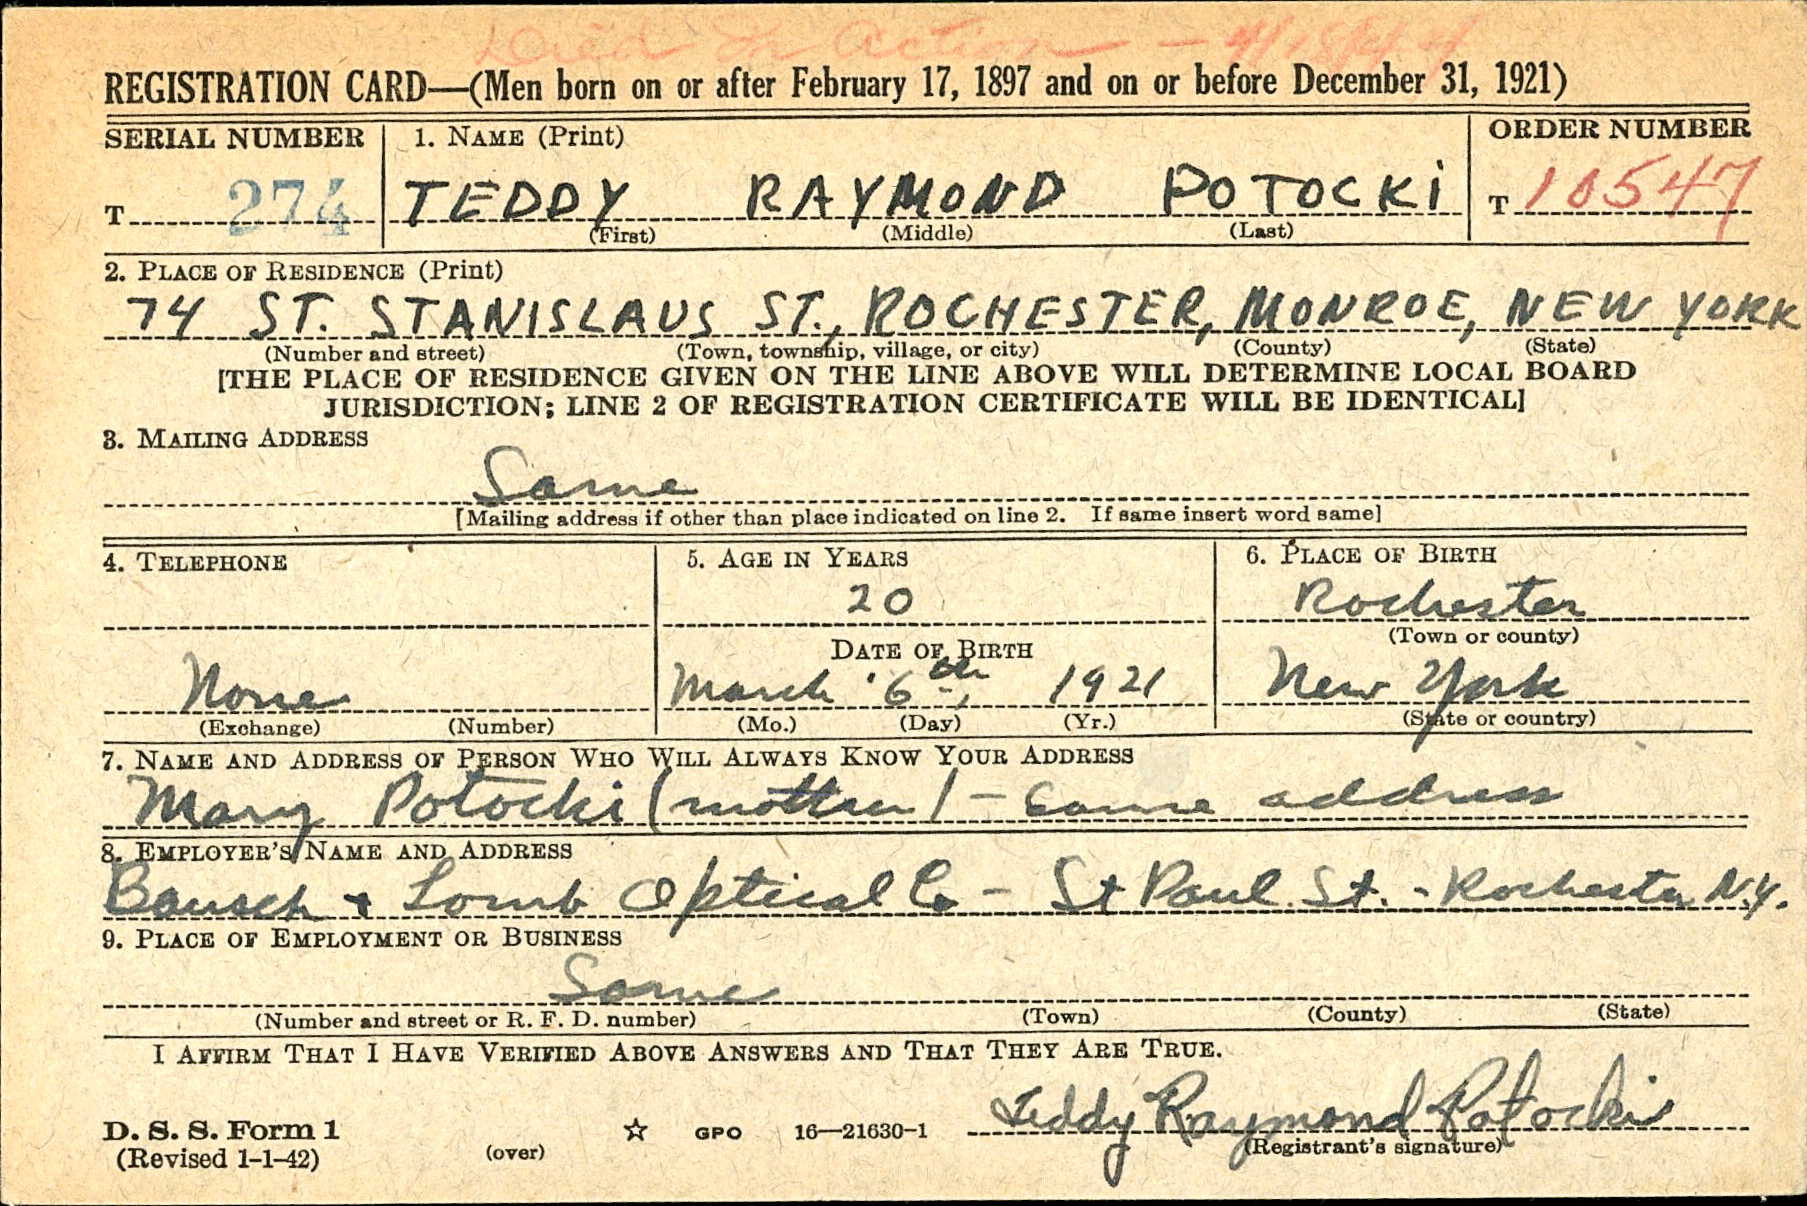 Died In Action - 4/18/44
REGISTRATION CARD—(Men born on or after February 17, 1897 and on or before December 31, 1921)
SERIAL NUMBER 1. NAME (Print) ORDER NUMBER
T 274 TEDDY RAYMOND POTOCKI T 10547
(First) (Middle) (Last)
2. PLACE OF RESIDENCE (Print)
74 ST. STANISLAUS ST., ROCHESTER, MONROE, NEW YORK
(Number and street) (Town, township, village, or city) (County) (State)
[THE PLACE OF RESIDENCE GIVEN ON THE LINE ABOVE WILL DETERMINE LOCAL BOARD
JURISDICTION; LINE 2 OF REGISTRATION CERTIFICATE WILL BE IDENTICAL]
3. MAILING ADDRESS
Same
[Mailing address if other than place indicated on line 2. If same insert word same]
4. TELEPHONE 5. AGE IN YEARS 6. PLACE OF BIRTH
20 Rochester
DATE OF BIRTH (Town or county)
None March 6th, 1921 New York
(Exchange) (Number) (Mo.) (Day) (Yr.) (State or country)
7. NAME AND ADDRESS OF PERSON WHO WILL ALWAYS KNOW YOUR ADDRESS
Mary Potocki (mother) - same address
8. EMPLOYER'S NAME AND ADDRESS
Bausch + Lomb Optical Co - St Paul St. - Rochester N.Y.
9. PLACE OF EMPLOYMENT OR BUSINESS
Same
(Number and street or R. F. D. number) (Town) (County) (State)
I AFFIRM THAT I HAVE VERIFIED ABOVE ANSWERS AND THAT THEY ARE TRUE.
Teddy Raymond Potocki
D. S. S. Form 1 (over) ☆ GPO 16—21630-1 (Registrant's signature)
(Revised 1-1-42)